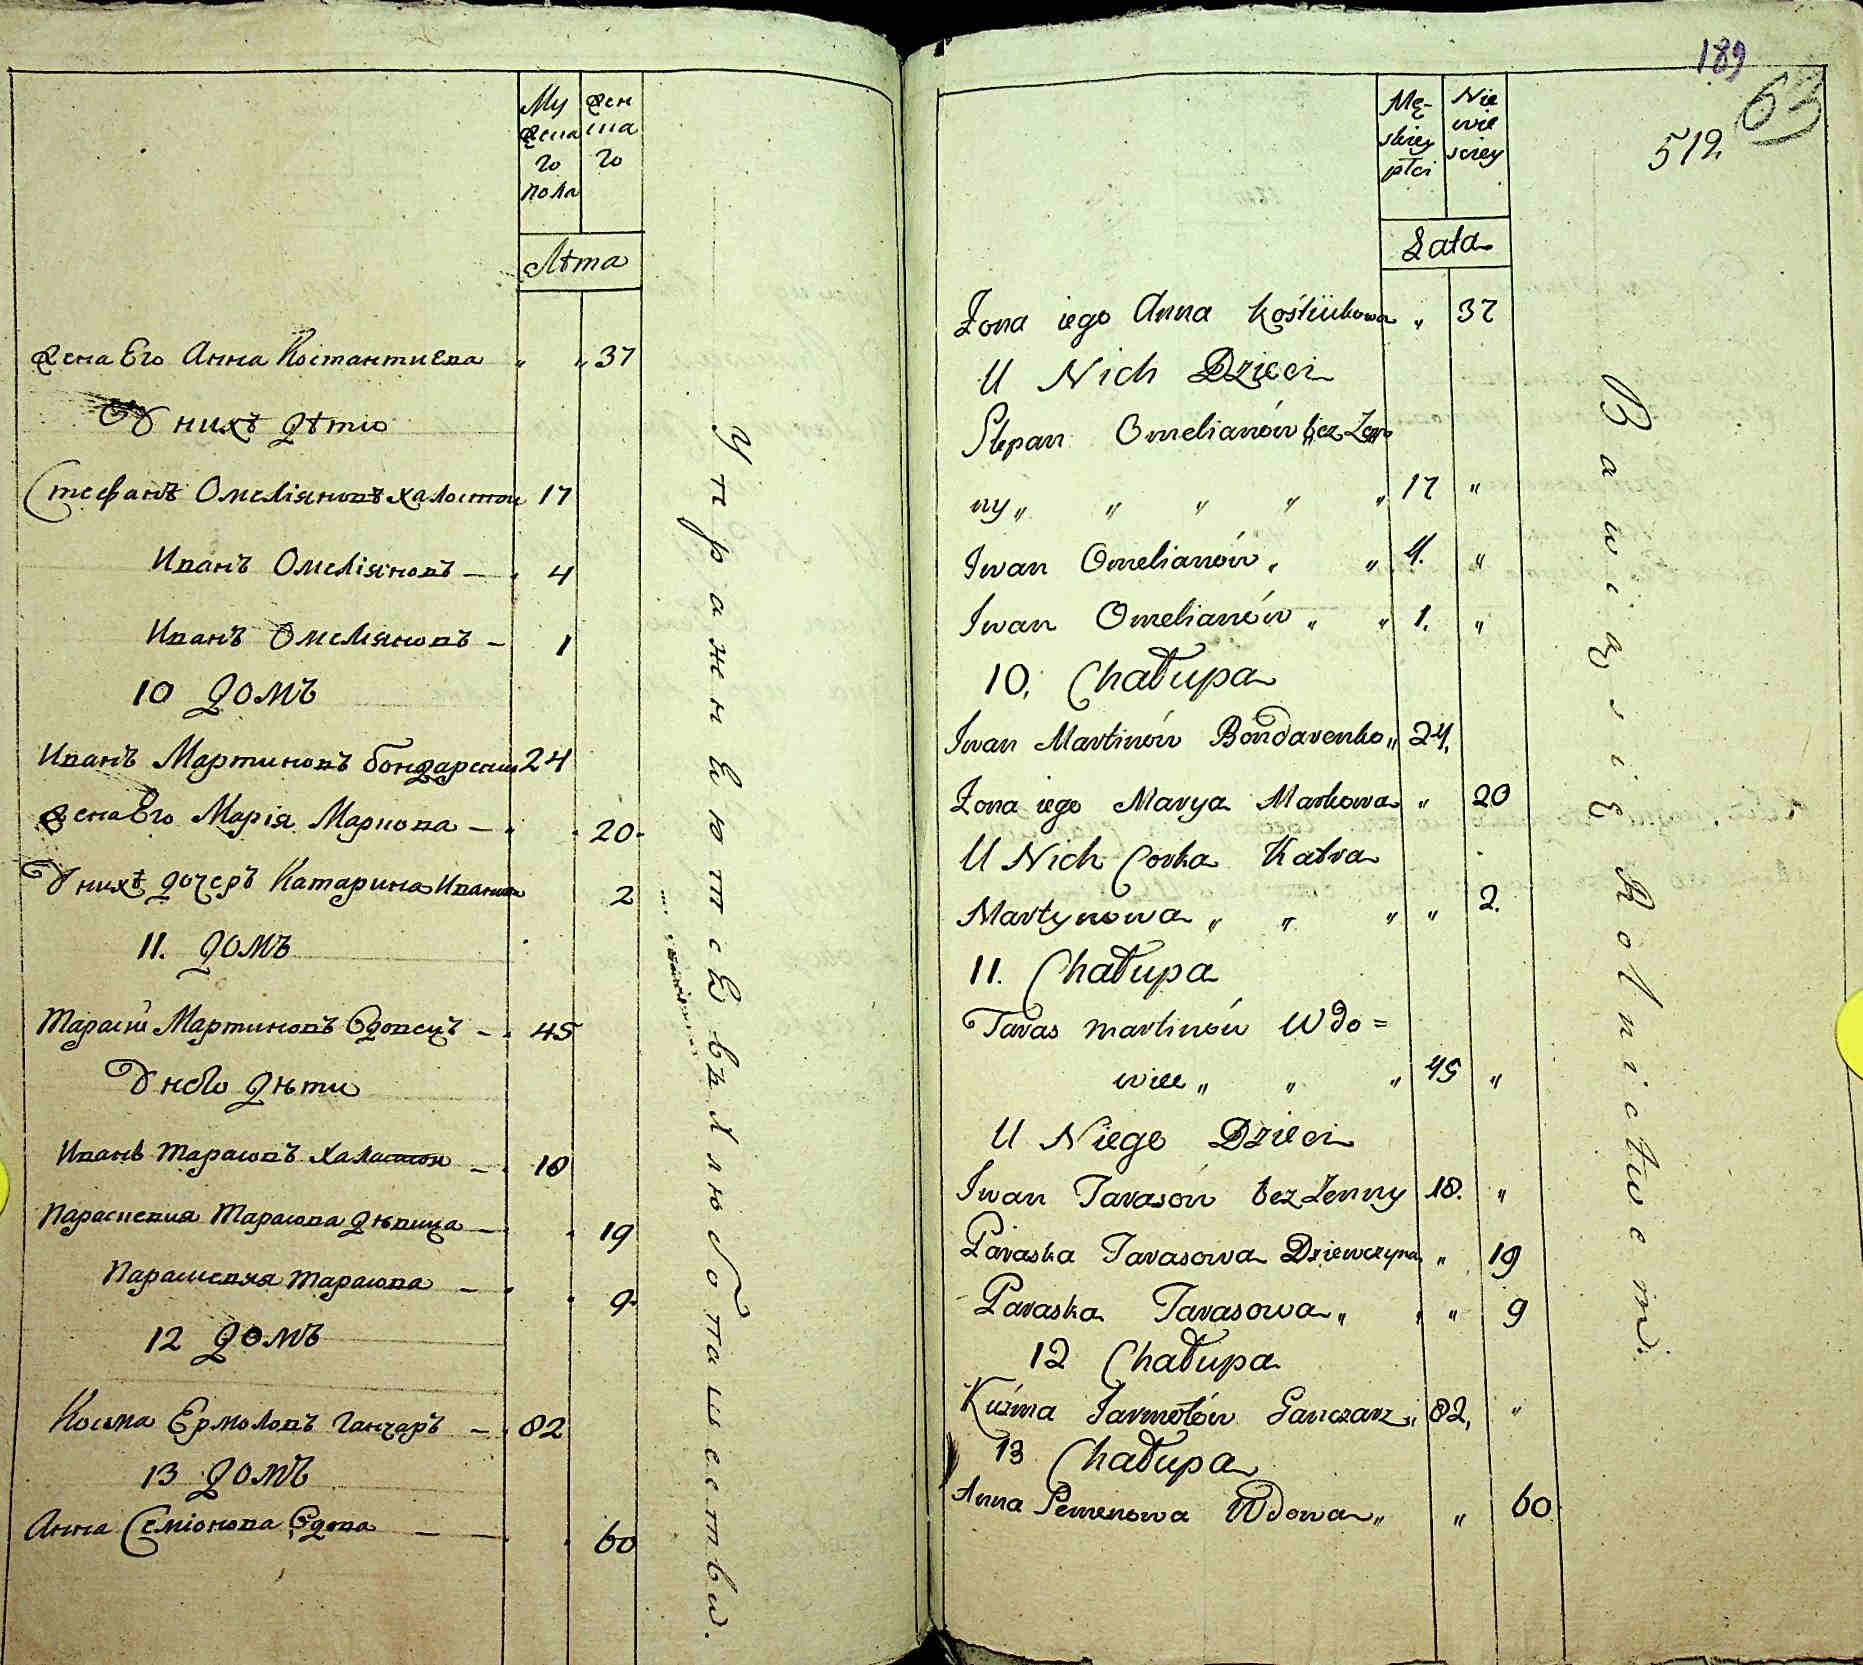 Му
жеска
го
пола
жен
ска
го
Лѣта
жена Его Анна Костантиева " " 37
У нихъ дѣти
Стефанъ Омеліяновъ халостои 17
Иванъ Омеліяновъ — " 4
Иванъ Омеляновъ — 1
10 домъ
Иванъ Мартиновъ бондаренко 24
жена Его Марія Маркова — " 20
У нихъ дочеръ Катарина Иванова 2
11. домъ
Тараcій Мартиновъ Вдовецъ — 45
У нєго дѣти
Иванъ Тарасовъ халастои — 18
Параскевия Тарасова дѣвица — 19
Параскевия Тарасова — 9
12 домъ
Косма Ермоловъ ганчаръ — 82
13 домъ
Анна Семіонова Вдова — — 60
Упражняются въ хлюбопашествы.
189
63
512.
Mę-
skiey
płci
Nie
wie
sciey
Lata
Żona iego Anna Kośtiukowa " 37
U Nich Dzieci
Stepan Omelianów bez Żen
ny " " " " " 17 "
Iwan Omelianów " " 4. "
Iwan Omelianów " " 1. "
10. Chałupa
Iwan Martinów Bondarenko " 24.
Żona iego Marya Markowa " 20
U Nich Corka Katra
Martynowa " " " " 2.
11. Chałupa
Taras martinów Wdo=
wiec " " " 45 "
U Niego Dzieci
Iwan Tarasów bez Żenny 18. "
Paraska Tarasowa Dziewczyna " 19
Paraska Tarasowa " " " 9
12 Chałupa
Kuźma Jarmołów Ganczarz " 82, "
13 Chałupa
Anna Semenowa Wdowa " " 60
Bawią się Rolnictwem.